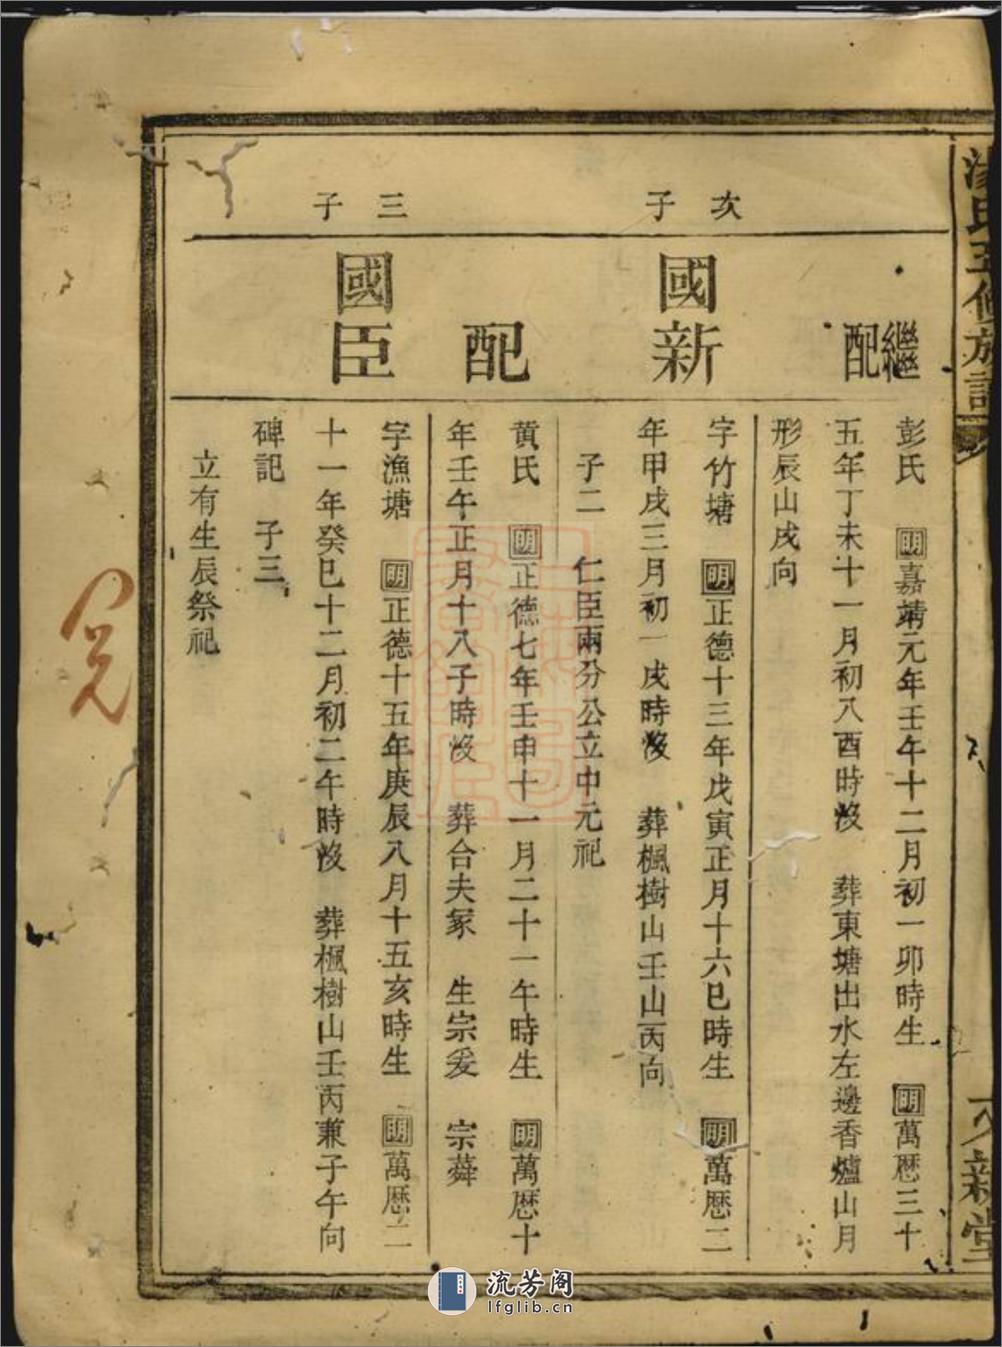 湯氏五修族譜
新堂
次子
三子
繼配
彭氏 明嘉靖元年壬午十二月初一卯時生 明萬曆三十
五年丁未十一月初八酉時歿 葬東塘出水左邊香爐山月
形辰山戌向
國新
字竹塘 明正德十三年戊寅正月十六巳時生 明萬曆二
年甲戌三月初一戌時歿 葬楓樹山壬山丙向
子二 仁臣兩分公立中元祀
配
黄氏 明正德七年壬申十一月二十一午時生 明萬曆十
年壬午正月十八子時歿 葬合夫冢 生宗爰 宗蕣
國臣
字漁塘 明正德十五年庚辰八月十五亥時生 明萬曆二
十一年癸巳十二月初二午時歿 葬楓樹山壬丙兼子午向
碑記 子三
立有生辰祭祀
流芳阁
lfglib.cn